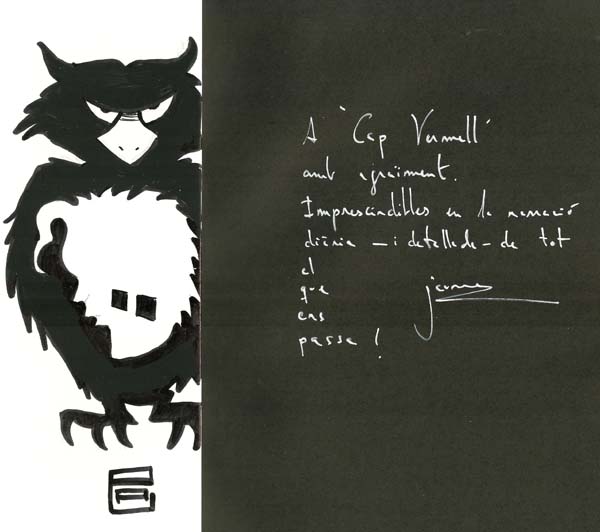 A "Cap Vermell"
amb agraïment.
Imprescindibles en la narració
diària – i detallada – de tot
el
que
ens
passa!
jaume